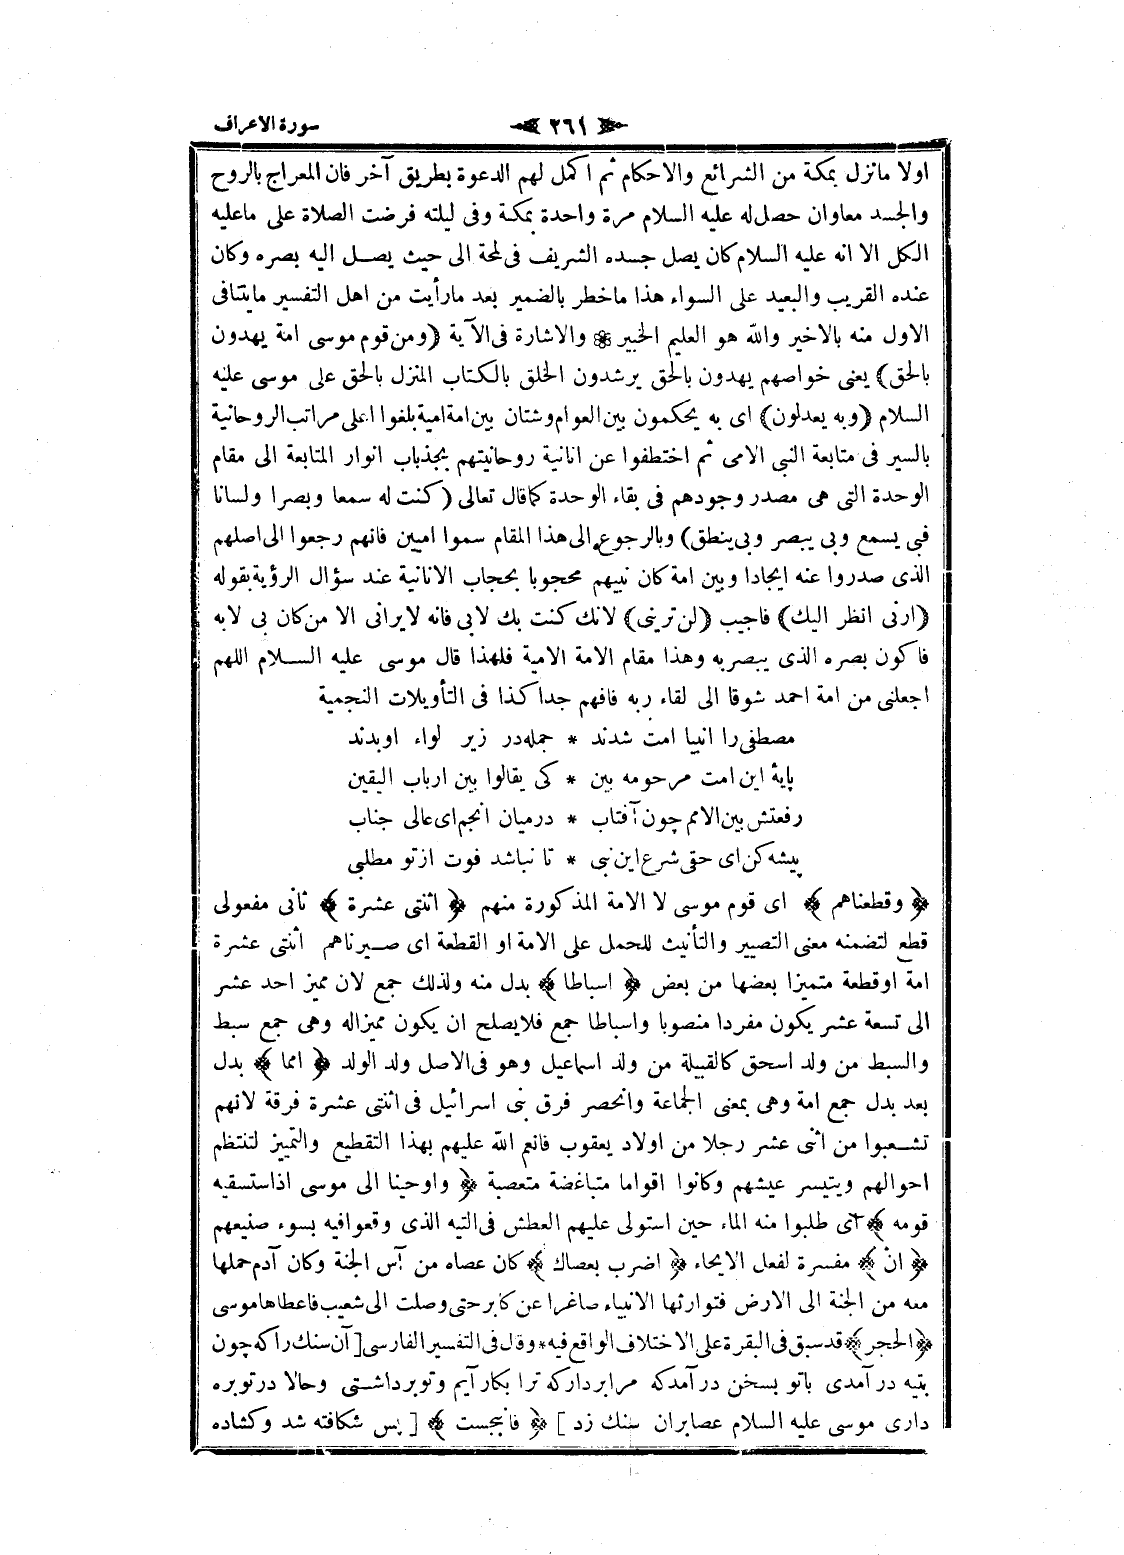 سورة الاعراف ٢٦١
اولا ما نزل بمكة من الشرائع والاحكام ثم اكمل لهم الدعوة بطريق آخر فان المعراج بالروح
والجسد معاوان حصل له عليه السلام مرة واحدة بمكة وفى ليلته فرضت الصلاة على ماعليه
الكل الا انه عليه السلام كان يصل جسده الشريف فى لمحة الى حيث يصل اليه بصره وكان
عنده القريب والبعيد على السواء هذا ماخطر بالضمير بعد مارأيت من اهل التفسير مايتنافى
الاول منه بالاخير والله هو العليم الخبير ❀ والاشارة فى الآية (ومن قوم موسى امة يهدون
بالحق) يعنى خواصهم يهدون بالحق يرشدون الخلق بالكتاب المنزل بالحق على موسى عليه
السلام (وبه يعدلون) اى به يحكمون بين العوام وشتان بين امة امية بلغوا اعلى مراتب الروحانية
بالسير فى متابعة النبى الامى ثم اختطفوا عن انانية روحانيتهم بجذبات انوار المتابعة الى مقام
الوحدة التى هى مصدر وجودهم فى بقاء الوحدة كماقال تعالى (كنت له سمعا وبصرا ولسانا
فبى يسمع وبى يبصر وبى ينطق) وبالرجوع الى هذا المقام سموا اميين فانهم رجعوا الى اصلهم
الذى صدروا عنه ايجادا وبين امة كان نبيهم محجوبا بحجاب الانانية عند سؤال الرؤية بقوله
(ارنى انظر اليك) فاجيب (لن ترينى) لانك كنت بك لابى فانه لايرانى الا من كان بى لابه
فاكون بصره الذى يبصربه وهذا مقام الامة الامية فلهذا قال موسى عليه السلام اللهم
اجعلنى من امة احمد شوقا الى لقاء ربه فافهم جدا كذا فى التأويلات النجمية
مصطفى را انبيا امت شدند * جمله در زير لواء اوبدند
پاية اين امت مرحومه بين * كى يقالوا بين ارباب اليقين
رفعتش بين الامم چون آفتاب * درميان انجم اى عالى جناب
پيشه كن اى حقى شرع اين نبى * تا نباشد فوت ازتو مطلبى
﴿ وقطعناهم ﴾ اى قوم موسى لا الامة المذكورة منهم ﴿ اثنتى عشرة ﴾ ثانى مفعولى
قطع لتضمنه معنى التصيير والتأنيث للحمل على الامة او القطعة اى صيرناهم اثنتى عشرة
امة اوقطعة متميزا بعضها من بعض ﴿ اسباطا ﴾ بدل منه ولذلك جمع لان مميز احد عشر
الى تسعة عشر يكون مفردا منصوبا واسباطا جمع فلايصلح ان يكون مميزاله وهى جمع سبط
والسبط من ولد اسحق كالقبيلة من ولد اسماعيل وهو فى الاصل ولد الولد ﴿ امما ﴾ بدل
بعد بدل جمع امة وهى بمعنى الجماعة وانحصر فرق بنى اسرائيل فى اثنتى عشرة فرقة لانهم
تشعبوا من اثنى عشر رجلا من اولاد يعقوب فانعم الله عليهم بهذا التقطيع والتمييز لتنتظم
احوالهم ويتيسر عيشهم وكانوا اقواما متباغضة متعصبة ﴿ واوحينا الى موسى اذاستسقيه
قومه ﴾ اى طلبوا منه الماء حين استولى عليهم العطش فى التيه الذى وقعوافيه بسوء صنيعهم
﴿ ان ﴾ مفسرة لفعل الايحاء ﴿ اضرب بعصاك ﴾ كان عصاه من آس الجنة وكان آدم حملها
معه من الجنة الى الارض فتوارثها الانبياء صاغرا عن كابر حتى وصلت الى شعيب فاعطاها موسى
﴿ الحجر ﴾ قدسبق فى البقرة على الاختلاف الواقع فيه * وقال فى التفسير الفارسى [ آن سنك را كه چون
بتيه در آمدى باتو بسخن در آمدكه مرا بردار كه ترا بكار آيم وتوبرداشتى وحالا درتوبره
دارى موسى عليه السلام عصا بران سنك زد ] ﴿ فانبجست ﴾ [ پس شكافته شد وكشاده